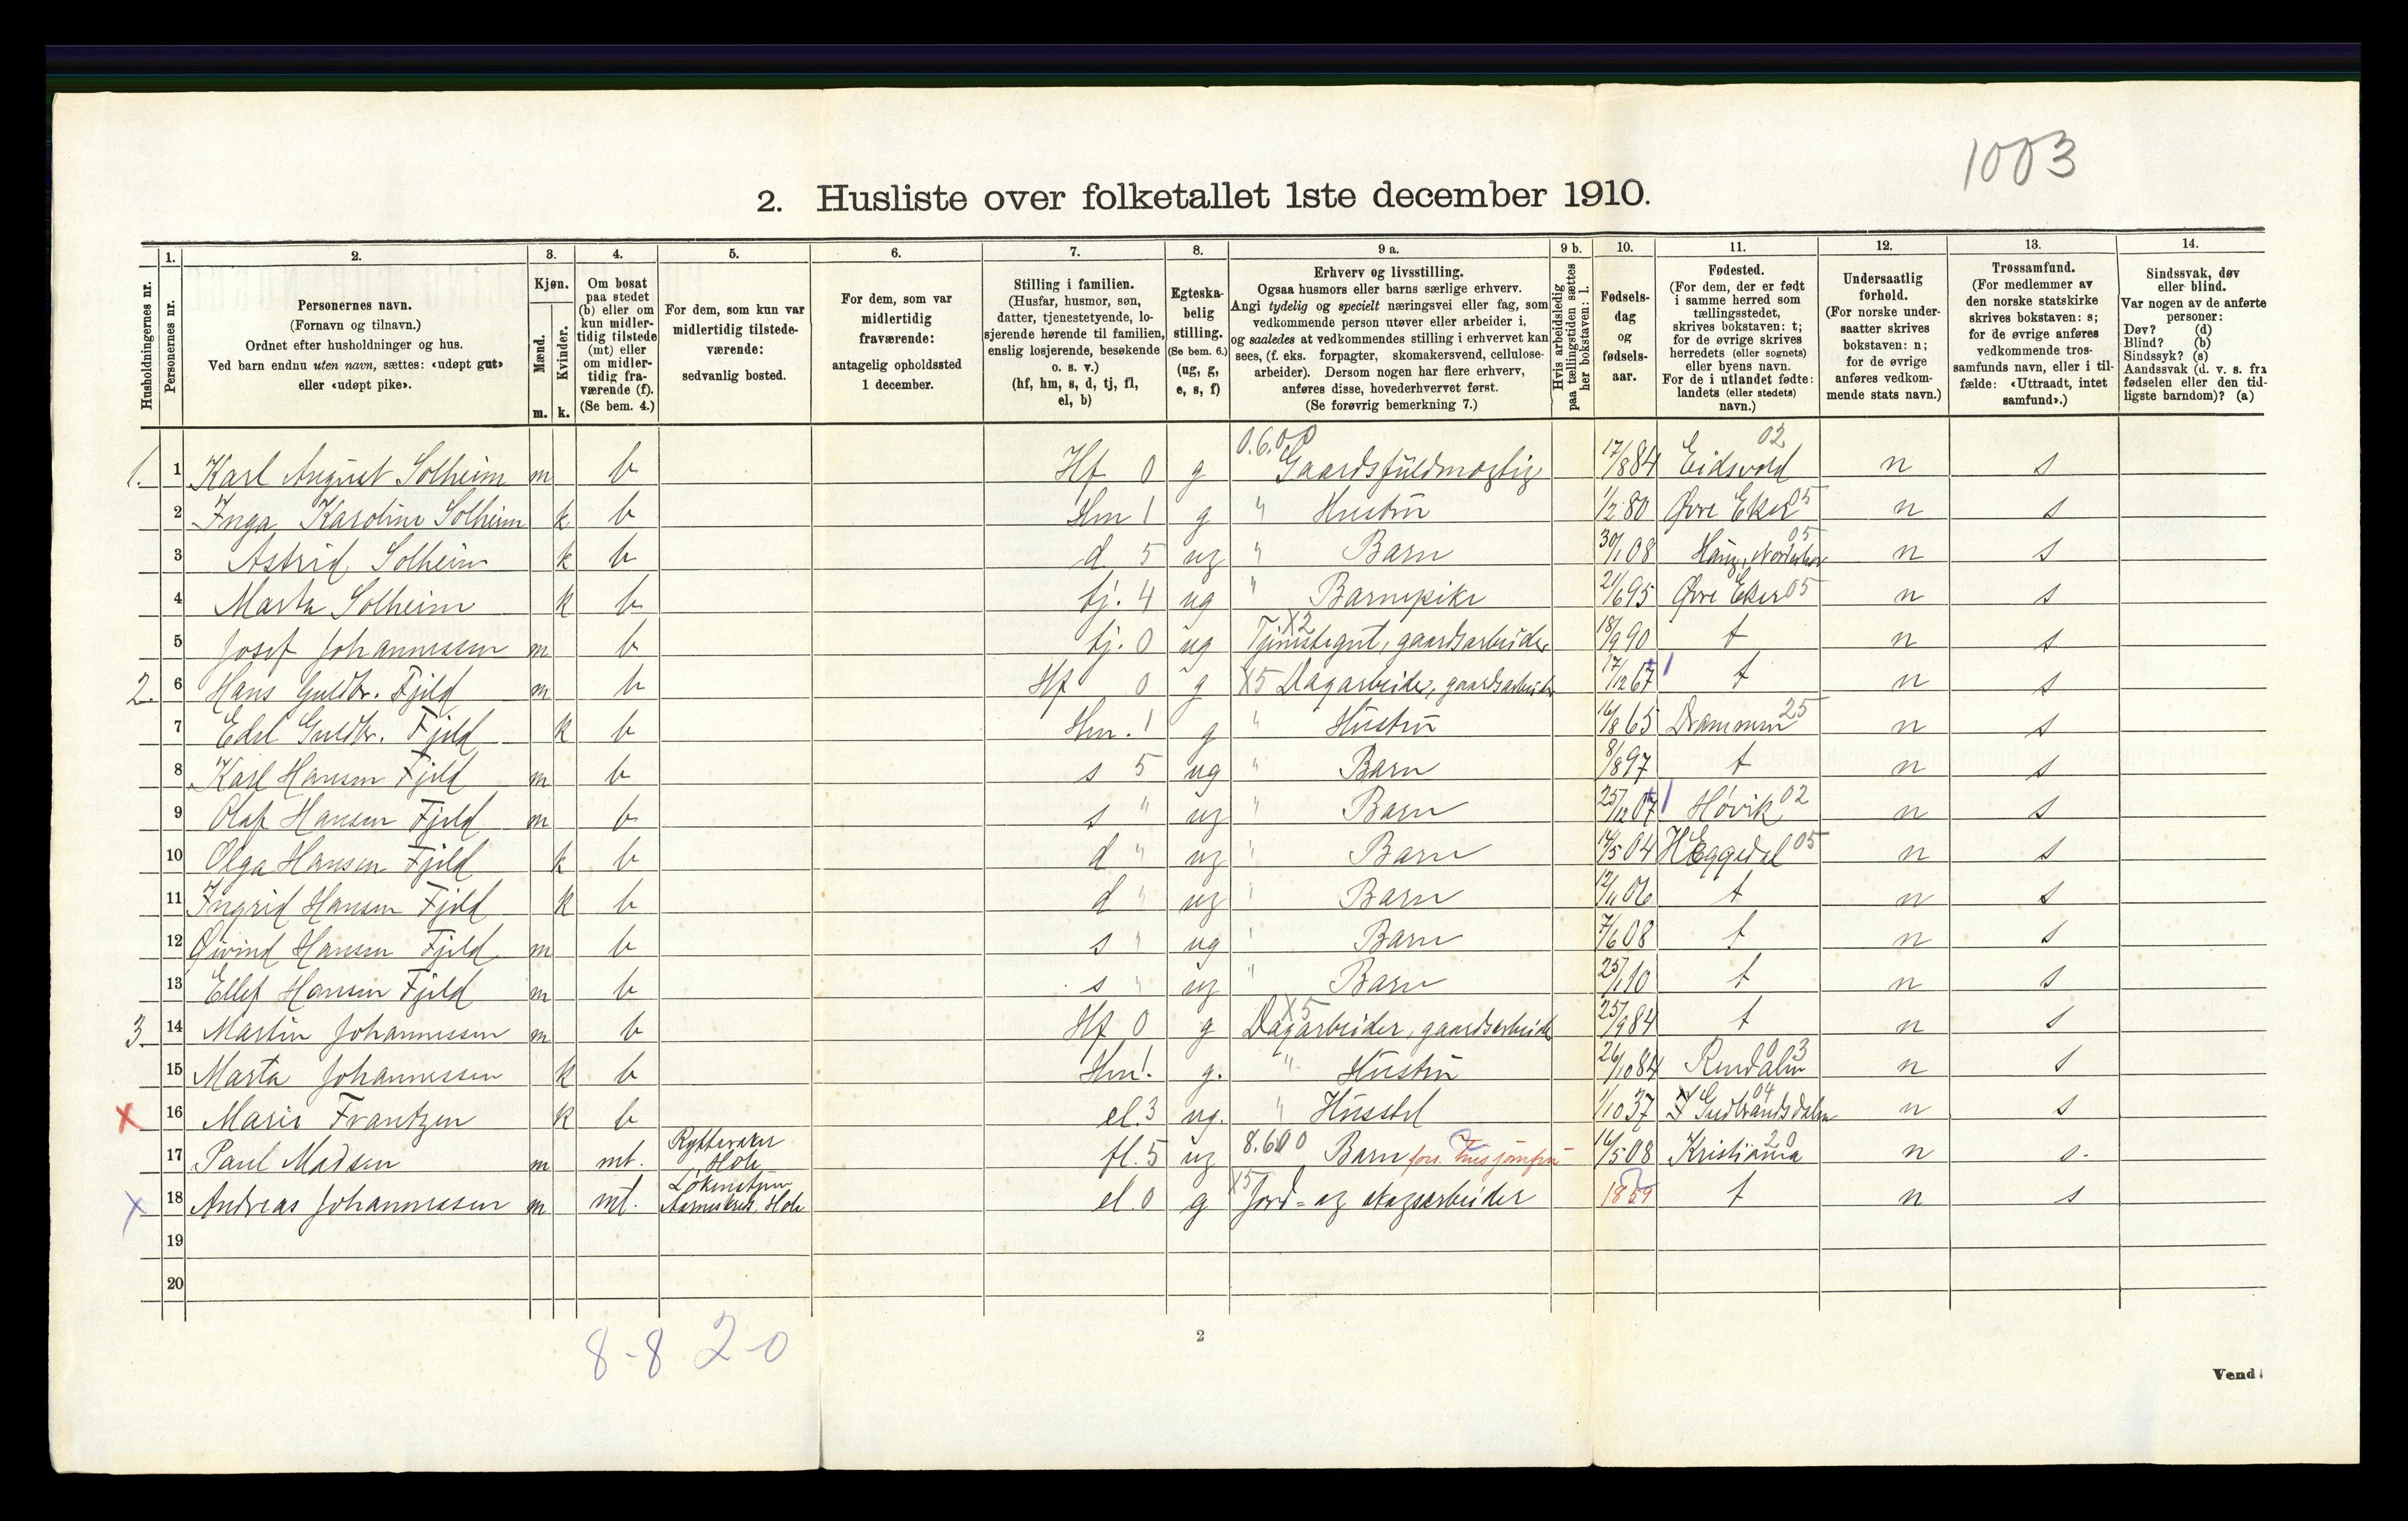 1003
2. Husliste over folketallet 1ste december 1910.
Husholdningernes nr.
1. Personernes nr.
2. Personernes navn.
(Fornavn og tilnavn.)
Ordnet efter husholdninger og hus.
Ved barn endnu uten navn, sættes: «udøpt gut»
eller «udøpt pike».
3. Kjøn.
Mænd. m.
Kvinder. k.
4. Om bosat
paa stedet
(b) eller om
kun midler-
tidig tilstede
(mt) eller
om midler-
tidig fra-
værende (f).
(Se bem. 4.)
5. For dem, som kun var
midlertidig tilstede-
værende:
sedvanlig bosted.
6. For dem, som var
midlertidig
fraværende:
antagelig opholdssted
1 december.
7. Stilling i familien.
(Husfar, husmor, søn,
datter, tjenestetyende, lo-
sjerende hørende til familien,
enslig losjerende, besøkende
o. s. v.)
(hf, hm, s, d, tj, fl,
el, b)
8. Egteska-
belig
stilling.
(Se bem. 6.)
(ug, g,
e, s, f)
9 a. Erhverv og livsstilling.
Ogsaa husmors eller barns særlige erhverv.
Angi tydelig og specielt næringsvei eller fag, som
vedkommende person utøver eller arbeider i,
og saaledes at vedkommendes stilling i erhvervet kan
sees, (f. eks. forpagter, skomakersvend, cellulose-
arbeider). Dersom nogen har flere erhverv,
anføres disse, hovederhvervet først.
(Se forøvrig bemerkning 7.)
9 b. Hvis arbeidsledig
paa tællingstiden sættes
her bokstaven: l.
10. Fødsels-
dag
og
fødsels-
aar.
11. Fødested.
(For dem, der er født
i samme herred som
tællingsstedet,
skrives bokstaven: t;
for de øvrige skrives
herredets (eller sognets)
eller byens navn.
For de i utlandet fødte:
landets (eller stedets)
navn.)
12. Undersaatlig
forhold.
(For norske under-
saatter skrives
bokstaven: n;
for de øvrige
anføres vedkom-
mende stats navn.)
13. Trossamfund.
(For medlemmer av
den norske statskirke
skrives bokstaven: s;
for de øvrige anføres
vedkommende tros-
samfunds navn, eller i til-
fælde: «Uttraadt, intet
samfund».)
14. Sindssvak, døv
eller blind.
Var nogen av de anførte
personer:
Døv? (d)
Blind? (b)
Sindssyk? (s)
Aandssvak (d. v. s. fra
fødselen eller den tid-
ligste barndom)? (a)
1. 1 Karl August Solheim m b Hf 0 g Gaardsfuldmægtig 17/8 84 Eidsvold 02 n s
2 Inga Karoline Solheim k b Hm 1 g " Hustru 1/2 80 Øvre Eker 05 n s
3 Astrid Solheim k b d 5 ug " Barn 30/1 08 Haug, Norderhov 05 n s
4 Marta Solheim k b tj. 4 ug " Barnepike 21/6 95 Øvre Eker 05 n s
5 Josef Johannessen m b tj. 0 ug X2 Tjenestegut, gaardsarbeider 18/9 90 t n s
2. 6 Hans Guldbr. Fjeld m b Hf 0 g X5 Dagarbeider, gaardsarbeider 17/12 67 t n s
7 Edel Guldbr. Fjeld k b Hm. 1 g " Hustru 16/8 65 Drammen 25 n s
8 Karl Hansen Fjeld m b s 5 ug " Barn 8/8 97 t n s
9 Olaf Hansen Fjeld m b s " ug " Barn 25/12 07 Høvik 02 n s
10 Olga Hansen Fjeld k b d " ug " Barn 14/5 04 Eggedal 05 n s
11 Ingrid Hansen Fjeld k b d " ug " Barn 12/11 06 t n s
12 Øivind Hansen Fjeld m b s " ug " Barn 7/6 08 t n s
13 Ellef Hansen Fjeld m b s " ug " Barn 25/1 10 t n s
3. 14 Martin Johannessen m b Hf 0 g X5 Dagarbeider, gaardsarbeider 25/9 84 t n s
15 Marta Johannessen k b Hm 1. g. " Hustru 26/10 84 Rendalen 03 n s
X 16 Marie Frantzen k b el. 3 ug. " Husstel 1/10 37 Gudbrandsdalen 04 n s
17 Paul Madsen m mt. Rytteraker Hole fl. 5 ug 8.600 Barn fors. husjomfru 16/5 08 Kristiania 20 n s.
X 18 Andreas Johannessen m mt. Hole el. 0 g X5 Jord- og skogsarbeider 1859 t n s
19
20
8-8 2-0
2
Vend!